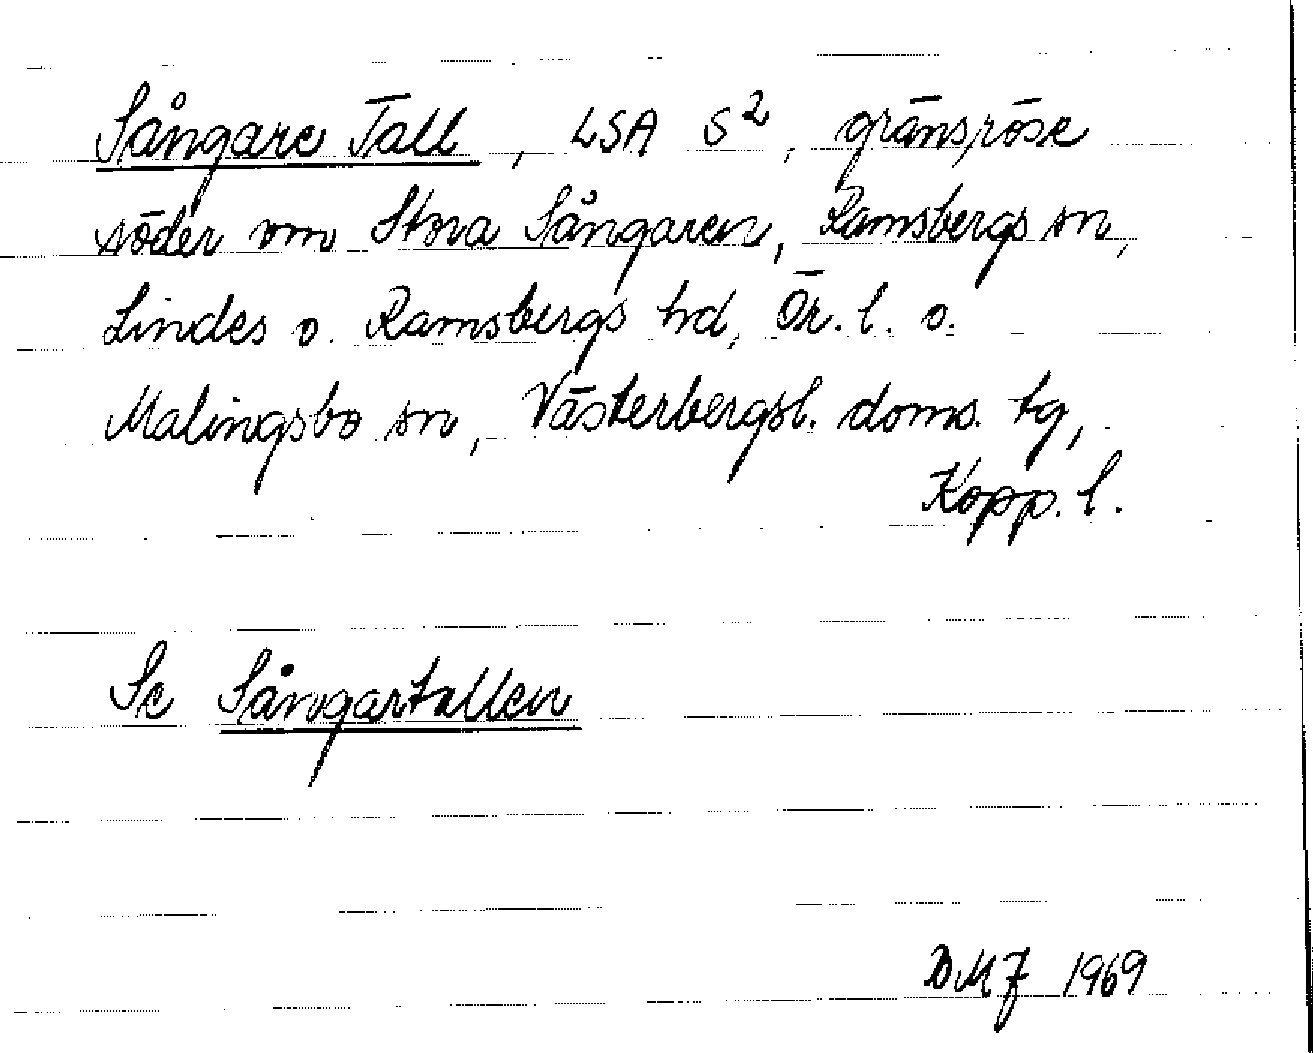 Sångare Tall, LSA S², gränsröse
söder om Stora Sångaren, Ramsbergs sn,
Lindes o. Ramsbergs hd, Ör. l. o.
Malingsbo sn, Västerbergsl. doms. tg,
Kopp. l.
Se Sångartallen
DMJ 1969